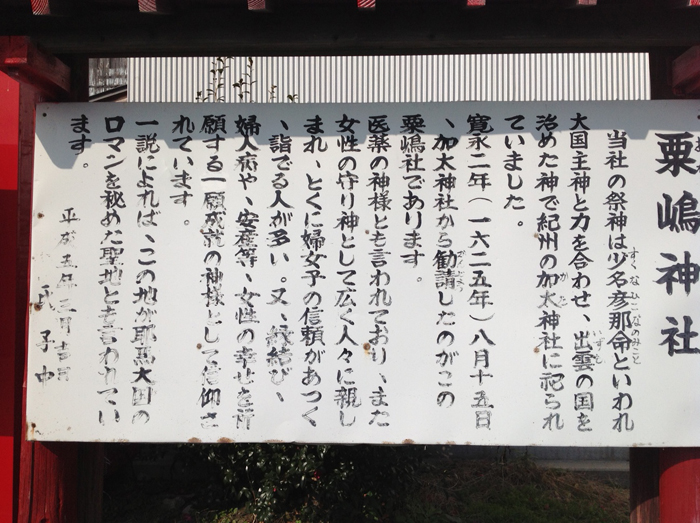 粟嶋神社
当社の祭神は少名彦那命といわれ
すくなひこなのみこと
大国主神と力を合わせ、出雲の国を
いずも
治めた神で紀州の加太神社に祀られ
かた
ていました。
寛永二年(一六二五年)八月十五日
、加太神社から勧請したのがこの
粟嶋社であります。
医薬の神様とも言われており、また
女性の守り神として広く人々に親し
まれ、とくに婦女子の信頼があつく
、詣でる人が多い。又、縁結び、
婦人病や、安産等、女性の幸せを祈
願する一願成就の神様として信仰さ
れています。
一説によれば、この地が耶馬大国の
ロマンを秘めた聖地とも言われてい
ます。
平成五年三月吉日
氏子中